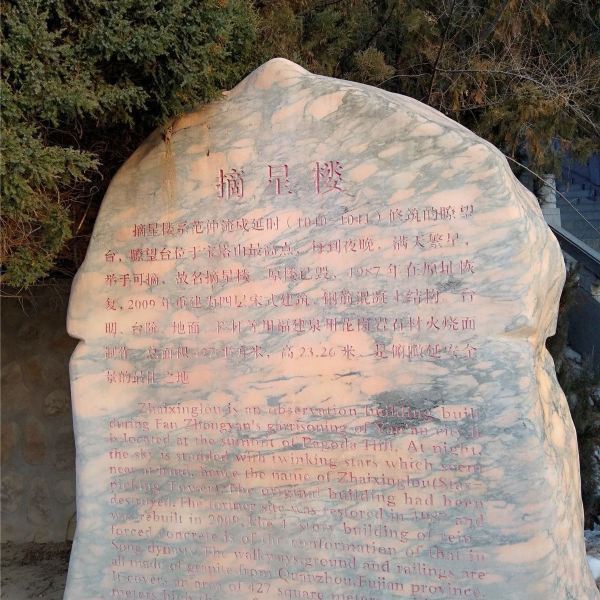 摘星楼
摘星楼系范仲淹戍延时（1040-1041）修筑的瞭望
台，瞭望台位于宝塔山最高点，每到夜晚，满天繁星，
举手可摘，故名摘星楼。原楼已毁，1987年在原址恢
复，2009年重建为四层宋式建筑，钢筋混泥土结构，台
明、台阶、地面、栏杆等用福建泉州花岗岩石材火烧面
制作，总面积427平方米，高23.26米，是俯瞰延安全
景的最佳之地
Zhaixinglou is an observation building buil
during Fan Zhongyan's garrisoning of Yan'an city. It
is located at the summit of Pagoda Hill. At night,
the sky is studded with twinking stars which seem
near at hand, hence the name of Zhaixinglou(Star-
picking Tower). The original building had been
destroyed. The former site was restored in 1987 and
was rebuilt in 2009. The 4-story building of rein-
forced concrete is of the conformation of that in
Song dynasty. The walkways, ground and railings are
all made of granite from Quanzhou, Fujian province.
It covers an area of 427 square meters
meters high